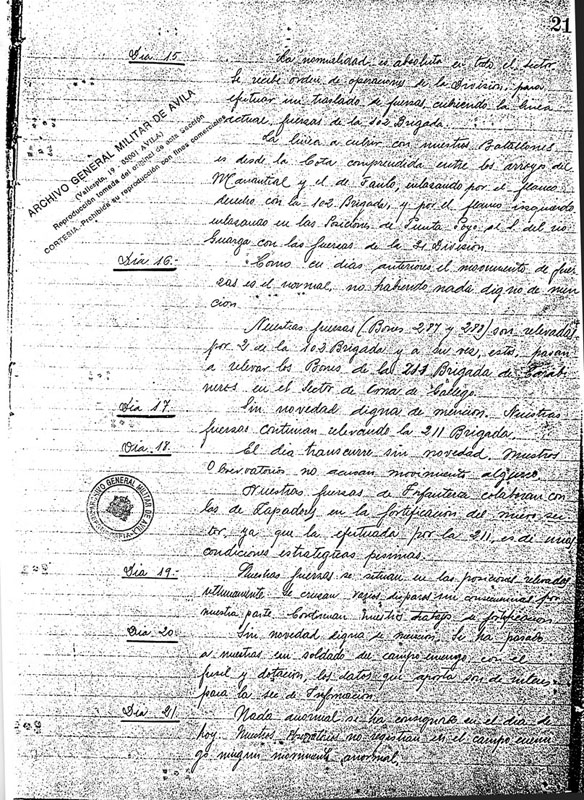 21
Día 15 La normalidad es absoluta en todo el sector
Se recibe orden de operaciones de la División, para
efectuar un traslado de fuerzas, cubriendo la linea
actual, fuerzas de la 102 Brigada.
La linea a cubrir con nuestros Batallones
es desde la Cota comprendida entre los arroyos del
Manantial y el de enlazando por el flanco
derecho con la 102 Brigada, y por el flanco izquierdo
enlazando en las Posiciones de del rio
con las fuerzas de la 31 División.
Día 16.- Como en dias anteriores el movimiento de fuer
zas es el normal, no habiendo nada digno de men
cion.
Nuestras fuerzas (Bones 287 y 288) son relevadas
por 2 de la 102 Brigada y a su vez, estos, pasan
a relevar los Bones de la 211 Brigada de Carabi
neros en el Sector de
Día 17. Sin novedad digna de mencion. Nuestras
fuerzas continuan relevando la 211 Brigada.
Día 18. El dia transcurre sin novedad, nuestros
Observatorios no acusan movimiento alguno.
Nuestras fuerzas de Infanteria colaboran con
las de Zapadores en la fortificacion del nuevo sec
tor, ya que la efectuada por la 211, es de unas
condiciones estrategicas pesimas.
Día 19- Nuestras fuerzas se situan en las posiciones relevadas
ultimamente. Se cruzan varios disparos sin consecuencias por
nuestra parte. Continuan nuestros trabajos de fortificacion
Día 20. Sin novedad digna de mencion. Se ha pasado
a nuestras un soldado del campo enemigo, con el
fusil y dotacion, los datos que aporta son de interes
para la sec de Informacion.
Día 21 Nada anormal se ha consignado en el dia de
hoy. Nuestros Observatorios no registran en el campo enemi
go ningun movimiento anormal.
ARCHIVO GENERAL MILITAR DE AVILA
(Vallespín, 19 - 05001 AVILA)
Reproducción tomada del original de esta sección
CORTESIA-Prohibida su reproducción con fines comerciales
ARCHIVO GENERAL MILITAR DE AVILA